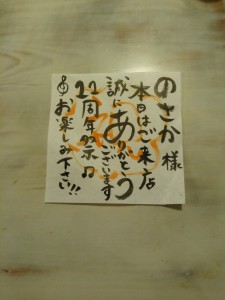 のさか様
本日はご来店
誠にありがとう
ございます
22周年祭♫
お楽しみ下さい!!